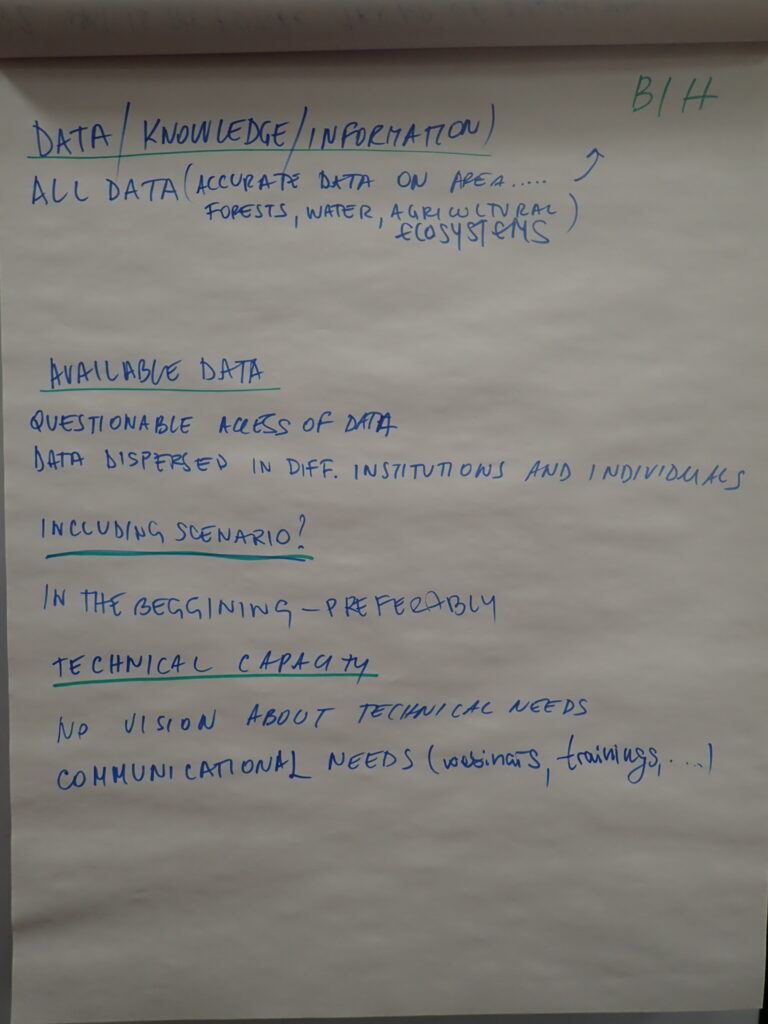 B/H
DATA/KNOWLEDGE/INFORMATION)
ALL DATA (ACCURATE DATA ON AREA.....
FORESTS, WATER, AGRICULTURAL)
ECOSYSTEMS
AVAILABLE DATA
QUESTIONABLE ACCESS OF DATA
DATA DISPERSED IN DIFF. INSTITUTIONS AND INDIVIDUALS
INCLUDING SCENARIO?
IN THE BEGGINING – PREFERABLY
TECHNICAL CAPACITY
NO VISION ABOUT TECHNICAL NEEDS
COMMUNICATIONAL NEEDS (webinars, trainings, ....)